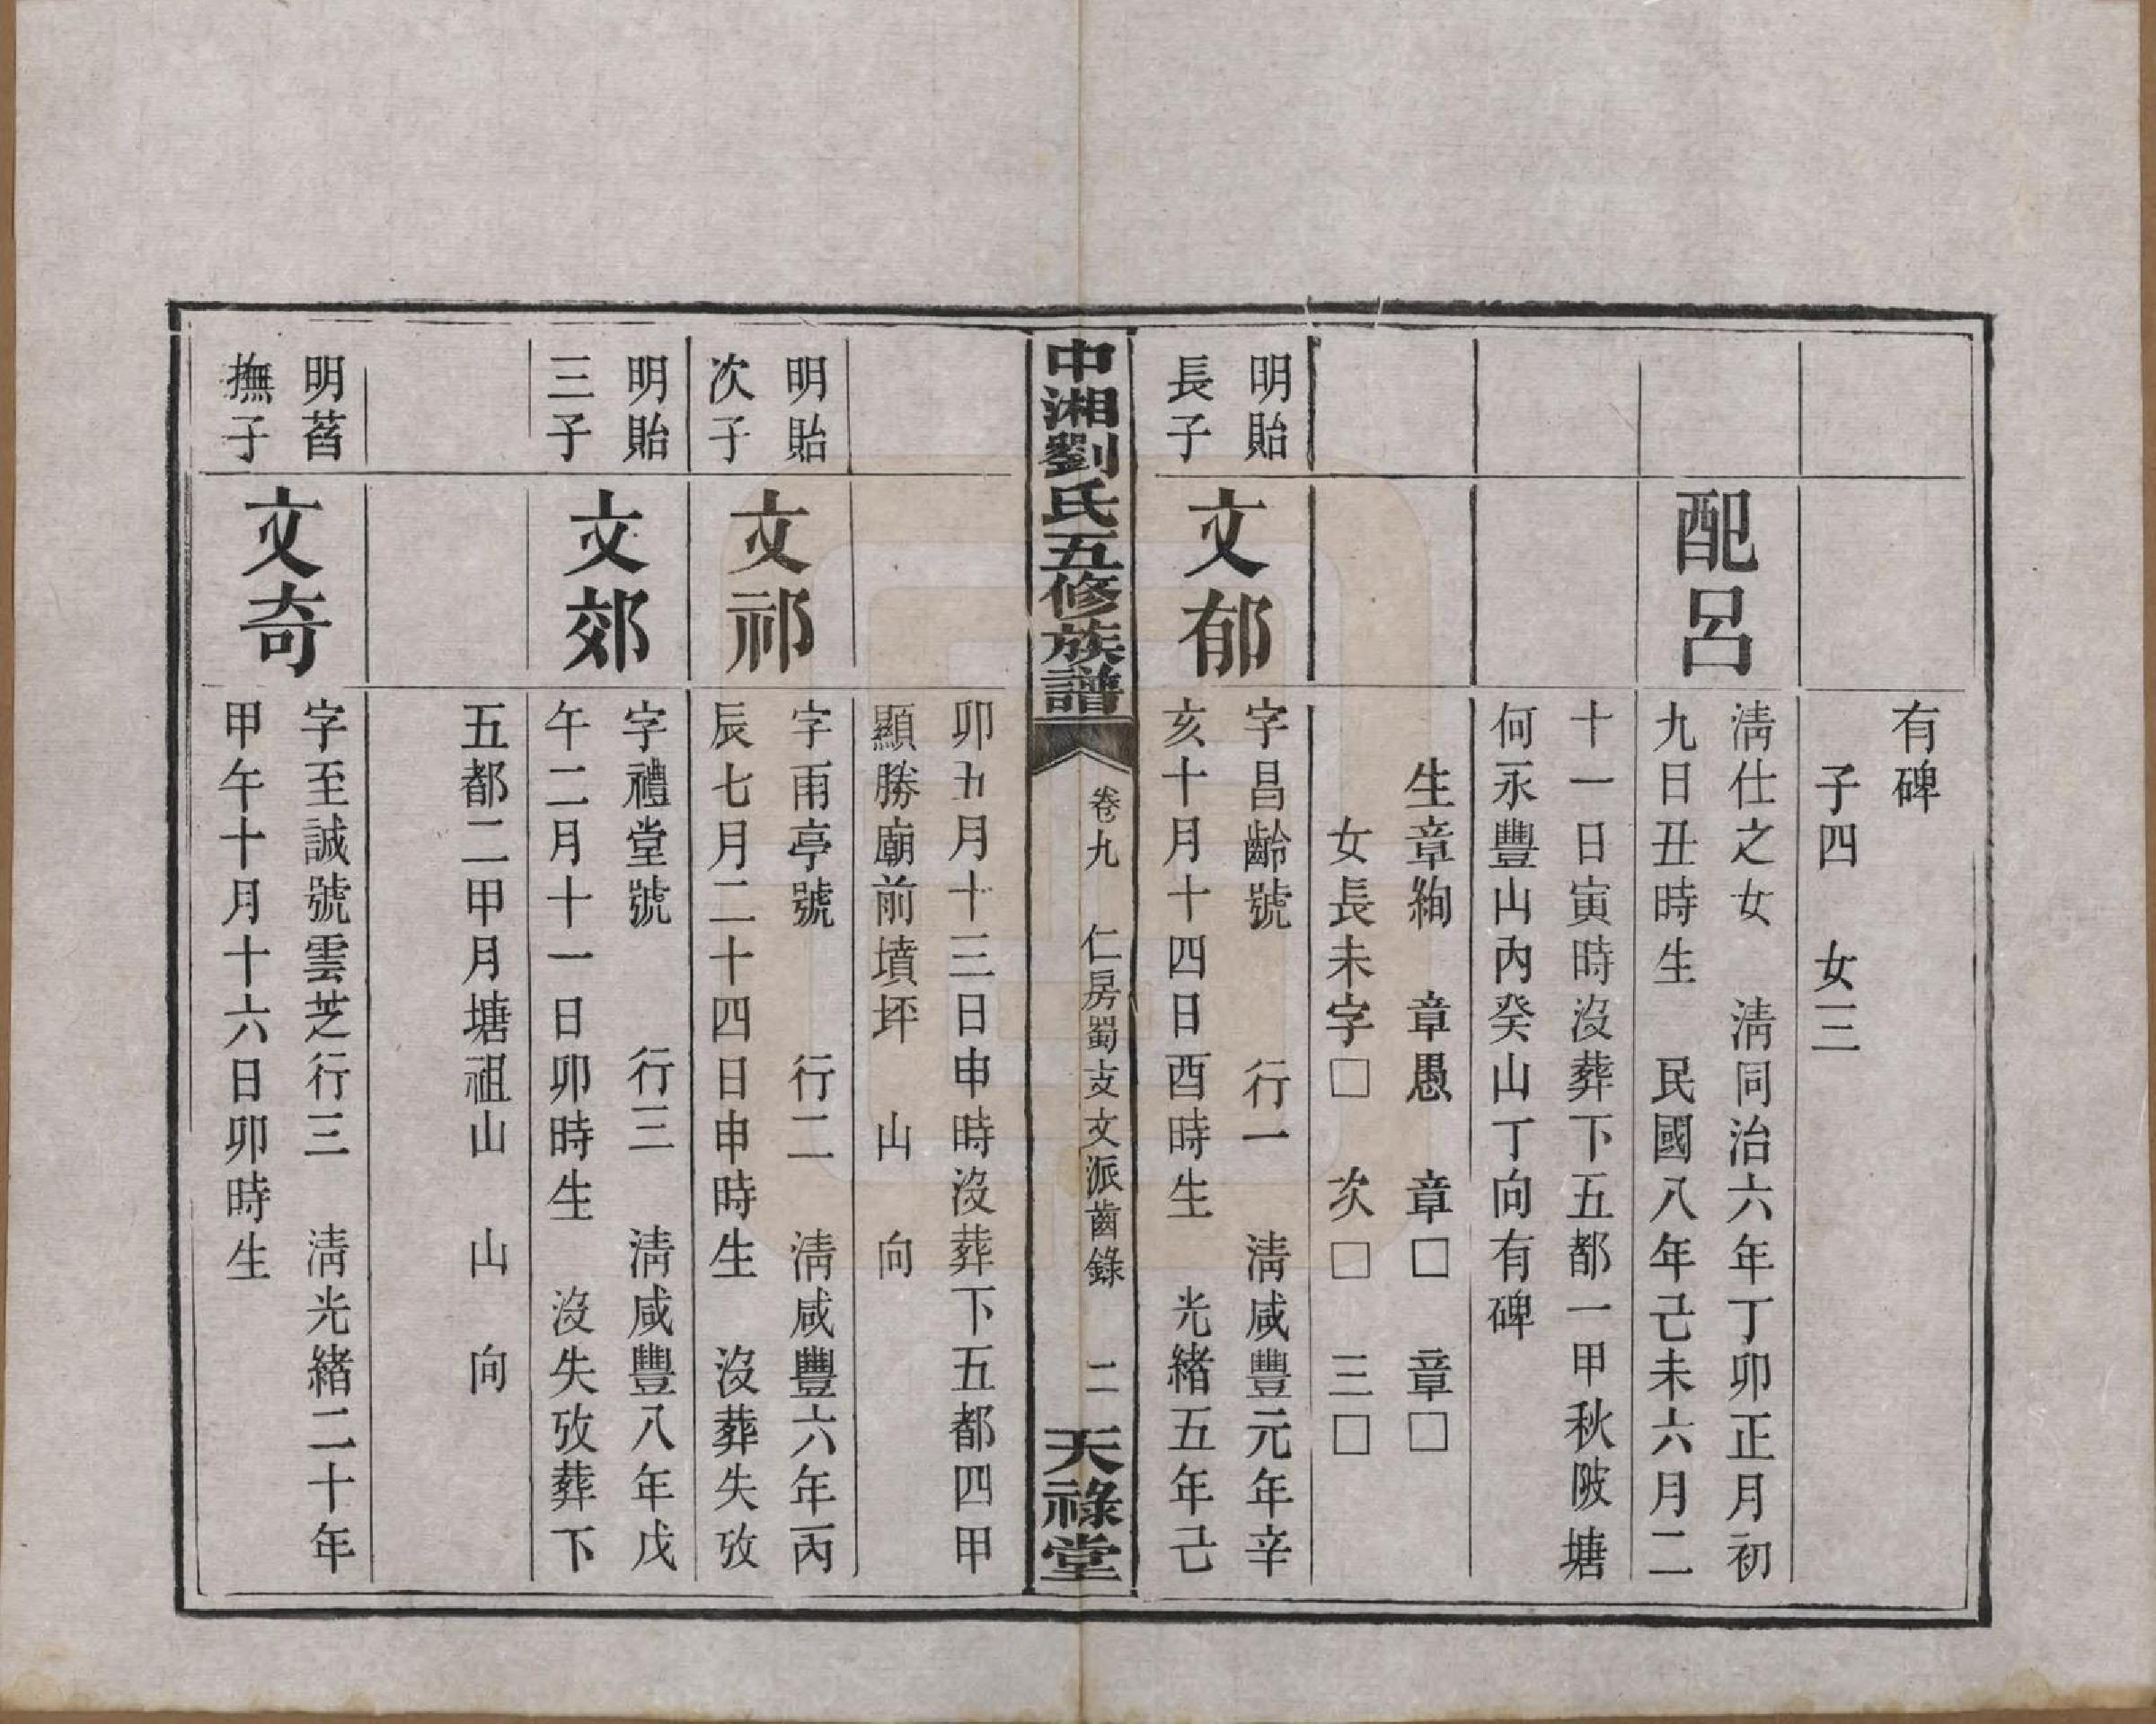 有碑
子四　女三
配呂
淸仕之女　淸同治六年丁卯正月初
九日丑時生　民國八年己未六月二
十一日寅時沒葬下五都一甲秋陂塘
何永豐山內癸山丁向有碑
生章絢　章愚　章□　章□
女長未字□　次□　三□
明貽
長子
文郁
字昌齡號　　行一　淸咸豐元年辛
亥十月十四日酉時生　光緒五年己
中湘劉氏五修族譜
卷九　仁房蜀支文派齒錄　二
天祿堂
卯五月十三日申時沒葬下五都四甲
顯勝廟前墳坪　山　向
明貽
次子
文祁
字雨亭號　　行二　淸咸豐六年丙
辰七月二十四日申時生　沒葬失攷
明貽
三子
文郊
字禮堂號　　行三　淸咸豐八年戊
午二月十一日卯時生　沒失攷葬下
五都二甲月塘祖山　山　向
明萏
撫子
文奇
字至誠號雲芝行三　淸光緒二十年
甲午十月十六日卯時生